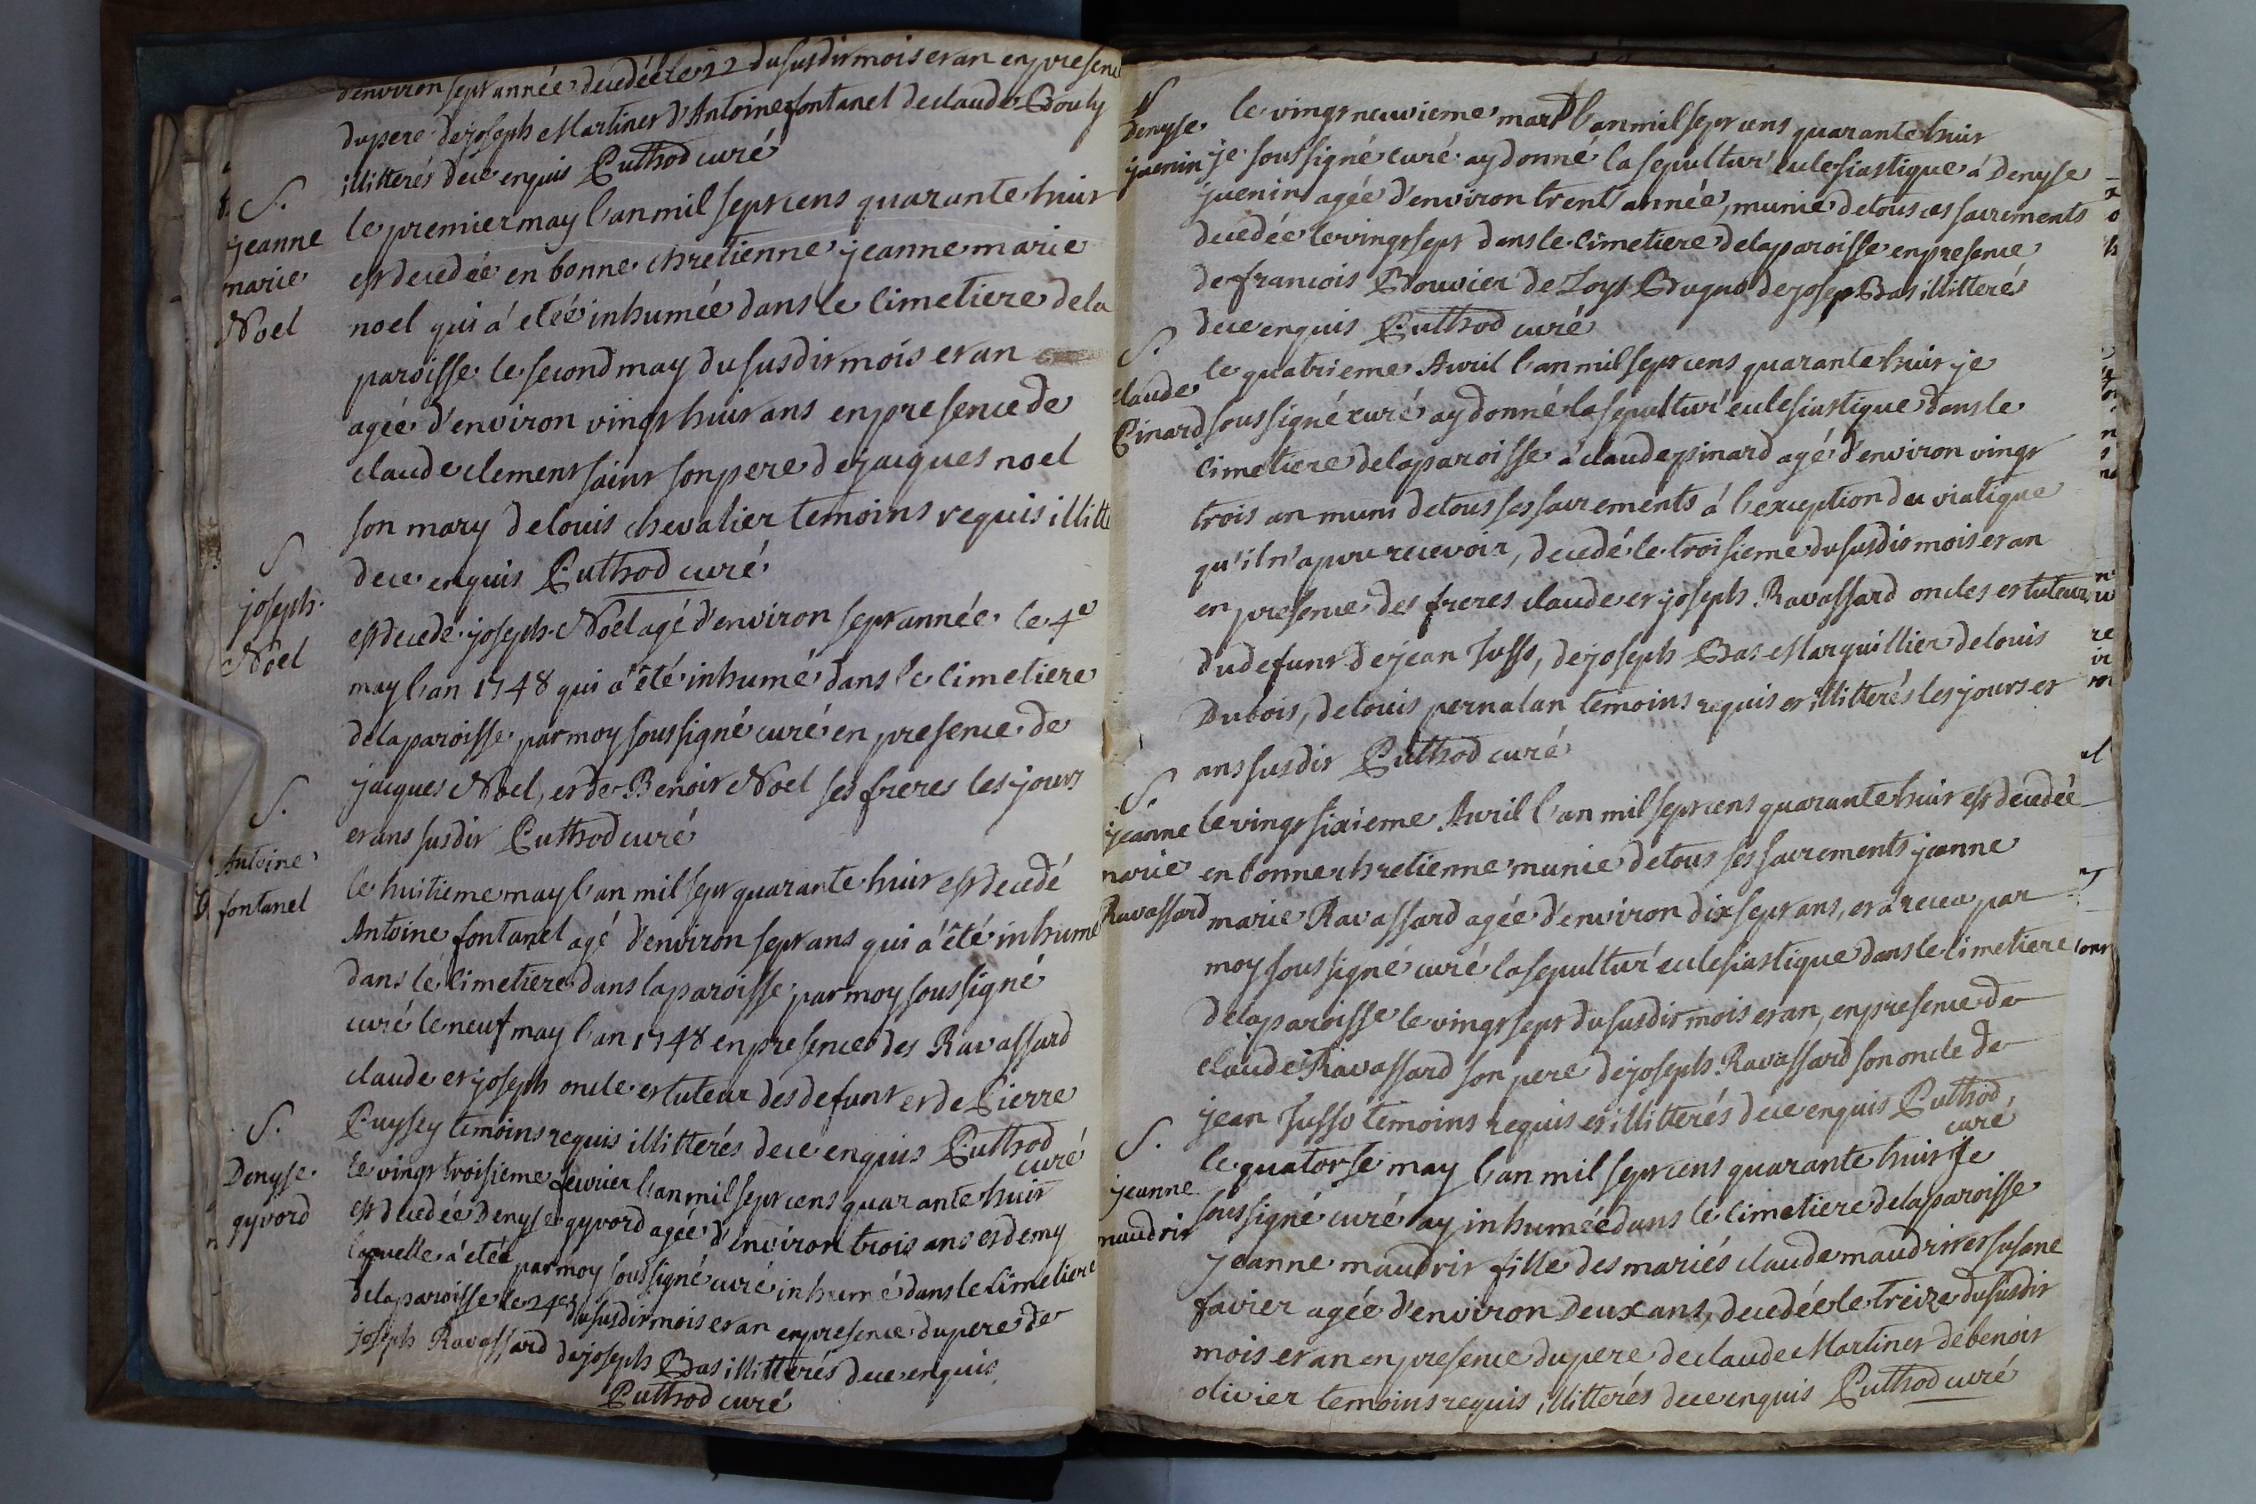 d'environ sept année decedée le 22 du susdit mois et an en presence
du pere de joseph Martinet d'Antoine fontanel de claude Bouly
illitterés de ce enquis Puthod curé
S.
jeanne
marie
Noel
le premier may l'an mil sept cens quarante huit
est decedée en bonne chretienne jeanne marie
noel qui a' etéé inhumée dans le cimetiere de la
paroisse le second may du susdit mois et an
agée d'environ vingt huit ans en presence de
claude clement saint son pere de jacques noel
son mary de louis chevalier temoins requis illitt
de ce enquis Puthod curé
S
joseph
Noel
est decedé joseph Noel agé d'environ sept année le 4e
may l'an 1748 qui a' été inhumé dans le cimetiere
de la paroisse par moy soussigné curé en presence de
jacques Noel, et de Benoit Noel ses freres les jours
et ans susdit Puthod curé
S.
Antoine
fontanel
le huitieme may l'an mil sept quarante huit est decedé
Antoine fontanel agé d'environ sept ans qui a' été inhumé
dans le cimetiere dans la paroisse par moy soussigné
curé le neuf may l'an 1748 en presence des Ravassard
claude et joseph oncle et tuteur des defunt et de Pierre
Puysey temoins requis illitterés de ce enquis Puthod
curé
S.
Denyse
gyvord
le vingt troisieme fevrier l'an mil sept cens quarante huit
est decedée Denyse gyvord agée d'environ trois ans et demy
laquelle a' etéé par moy soussigné curé inhumé dans le cimetiere
de la paroisse le 24e du susdit mois et an en presence du pere de
joseph Ravassard de joseph Bas illitterés de ce enquis
Puthod curé
S
Denyse
juenin
le vingt neuvieme mars l'an mil sept cens quarante huit
je soussigné curé ay donné la sepultur' eclesiastique á Denyse
juenin agée d'environ trent' année, munie de tous ces sacrements
decedée le vingt sept dans le cimetiere de la paroisse en presence
de francois Bouvier de Loys Bugnod de josep Bas illitterés
de ce enquis Puthod curé
S.
claude
Pinard
le quatrieme Avril l'an mil sept cens quarante huit je
soussigné curé ay donné la sepultur' eclesiastique dans le
cimetiere de la paroisse a' claude pinard agé d'environ vingt
trois an muni de tous ses sacrements á l'exception du viatique
qu'il n'a pu recevoir, decedé le troisieme du susdit mois et an
en presence des freres claude et joseph Ravassard oncles et tuteur
du defunt de jean Jusso, de joseph Bas Marguillier de louis
Dubois, de louis pernatan temoins requis et illitterés les jours et
ans susdit Puthod curé
S.
jeanne
marie
Ravassard
le vingt sixieme Avril l'an mil sept cens quarante huit est decedée
en bonne chretienne munie de tous ses sacrements jeanne
marie Ravassard agée d'environ dix sept ans, et a receu par
moy soussigné curé la sepultur' eclesiastique dans le cimetiere
de la paroisse le vingt sept du susdit mois et an, en presence de
claude Ravassard son pere de joseph Ravassard son oncle de
jean Jusso temoins requis et illitterés de ce enquis Puthod
curé
S.
jeanne
maudrit
le quatorse may l'an mil sept cens quarante huit je
soussigné curé ay inhumée dans le cimetiere de la paroisse
jeanne maudrit fille des mariés claude maudrit et susane
favier agée d'environ deux ans, decedée le treize du susdit
mois et an en presence du pere de claude Martinet de benoit
olivier temoins requis illitterés de ce enquis Puthod curé